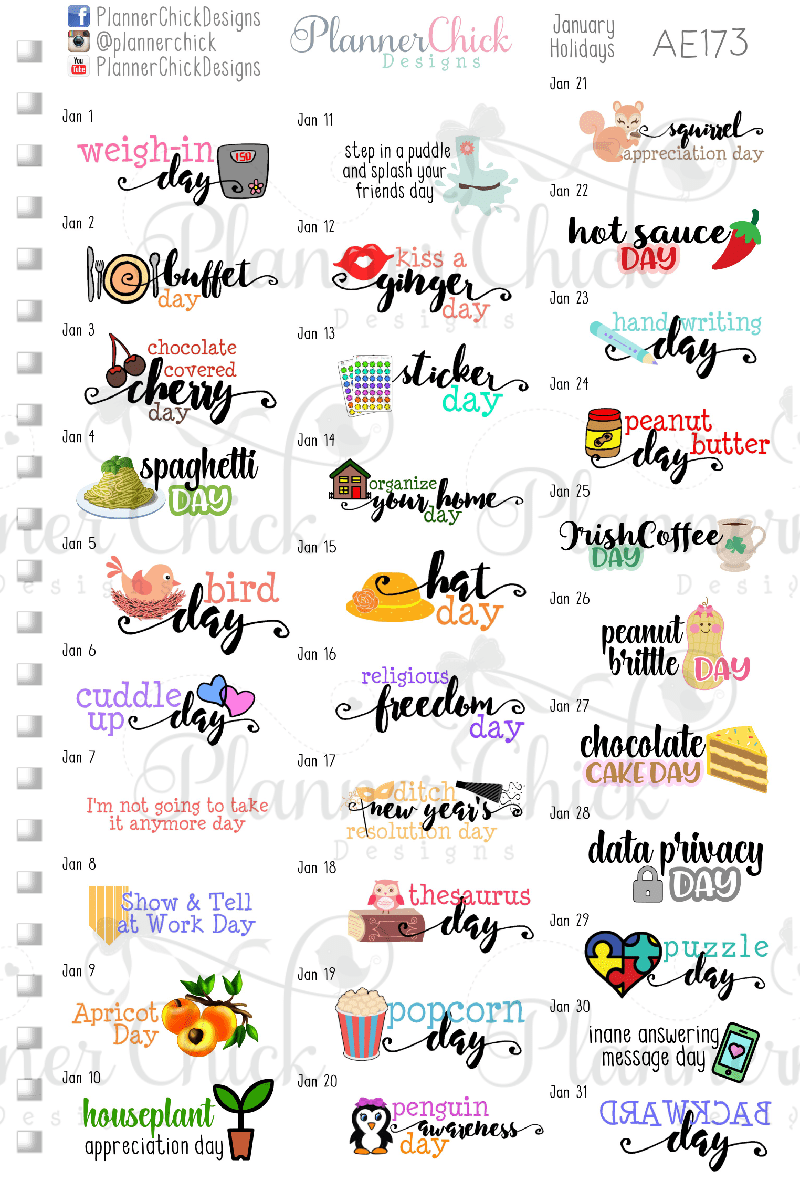 PlannerChickDesigns
@plannerchick
You Tube PlannerChickDesigns
PlannerChick
Designs
January
Holidays
AE173
Jan 1
150
weigh-in
day
Jan 2
buffet
day
Jan 3
chocolate
covered
cherry
day
Jan 4
spaghetti
DAY
Jan 5
bird
day
Jan 6
cuddle
up day
Jan 7
I'm not going to take
it anymore day
Jan 8
Show & Tell
at Work Day
Jan 9
Apricot
Day
Jan 10
houseplant
appreciation day
Jan 11
step in a puddle
and splash your
friends day
Jan 12
kiss a
ginger
day
Jan 13
sticker
day
Jan 14
organize
your home
day
Jan 15
hat
day
Jan 16
religious
freedom
day
Jan 17
ditch
new year's
resolution day
Jan 18
thesaurus
day
Jan 19
popcorn
day
Jan 20
penguin
awareness
day
Jan 21
squirrel
appreciation day
Jan 22
hot sauce
DAY
Jan 23
hand writing
day
Jan 24
peanut
butter
day
Jan 25
Irish Coffee
DAY
Jan 26
peanut
brittle
DAY
Jan 27
chocolate
CAKE DAY
Jan 28
data privacy
DAY
Jan 29
puzzle
day
Jan 30
inane answering
message day
Jan 31
BACKWARD
day
Planner Chick
Designs